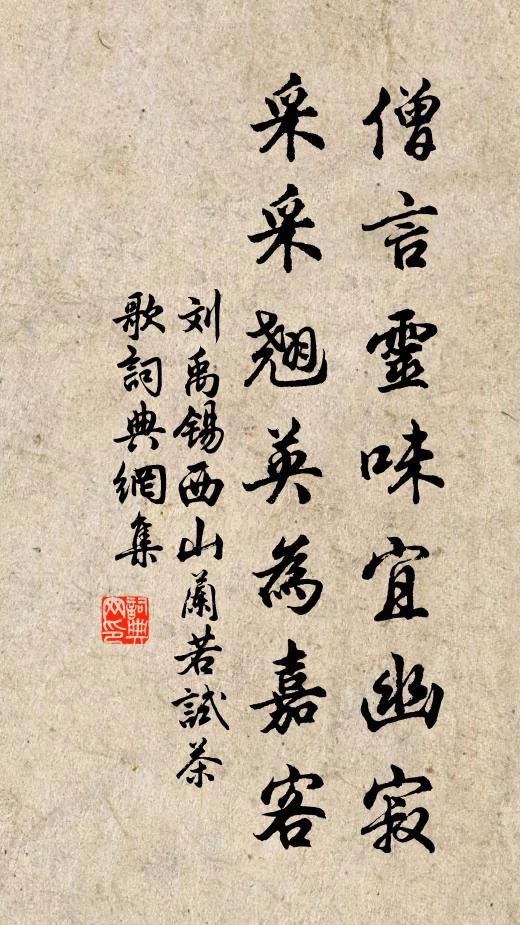 僧言靈味宜幽寂
采采翹英為嘉客
刘禹锡西山蘭若試茶
歌詞典網集
詞典
网印